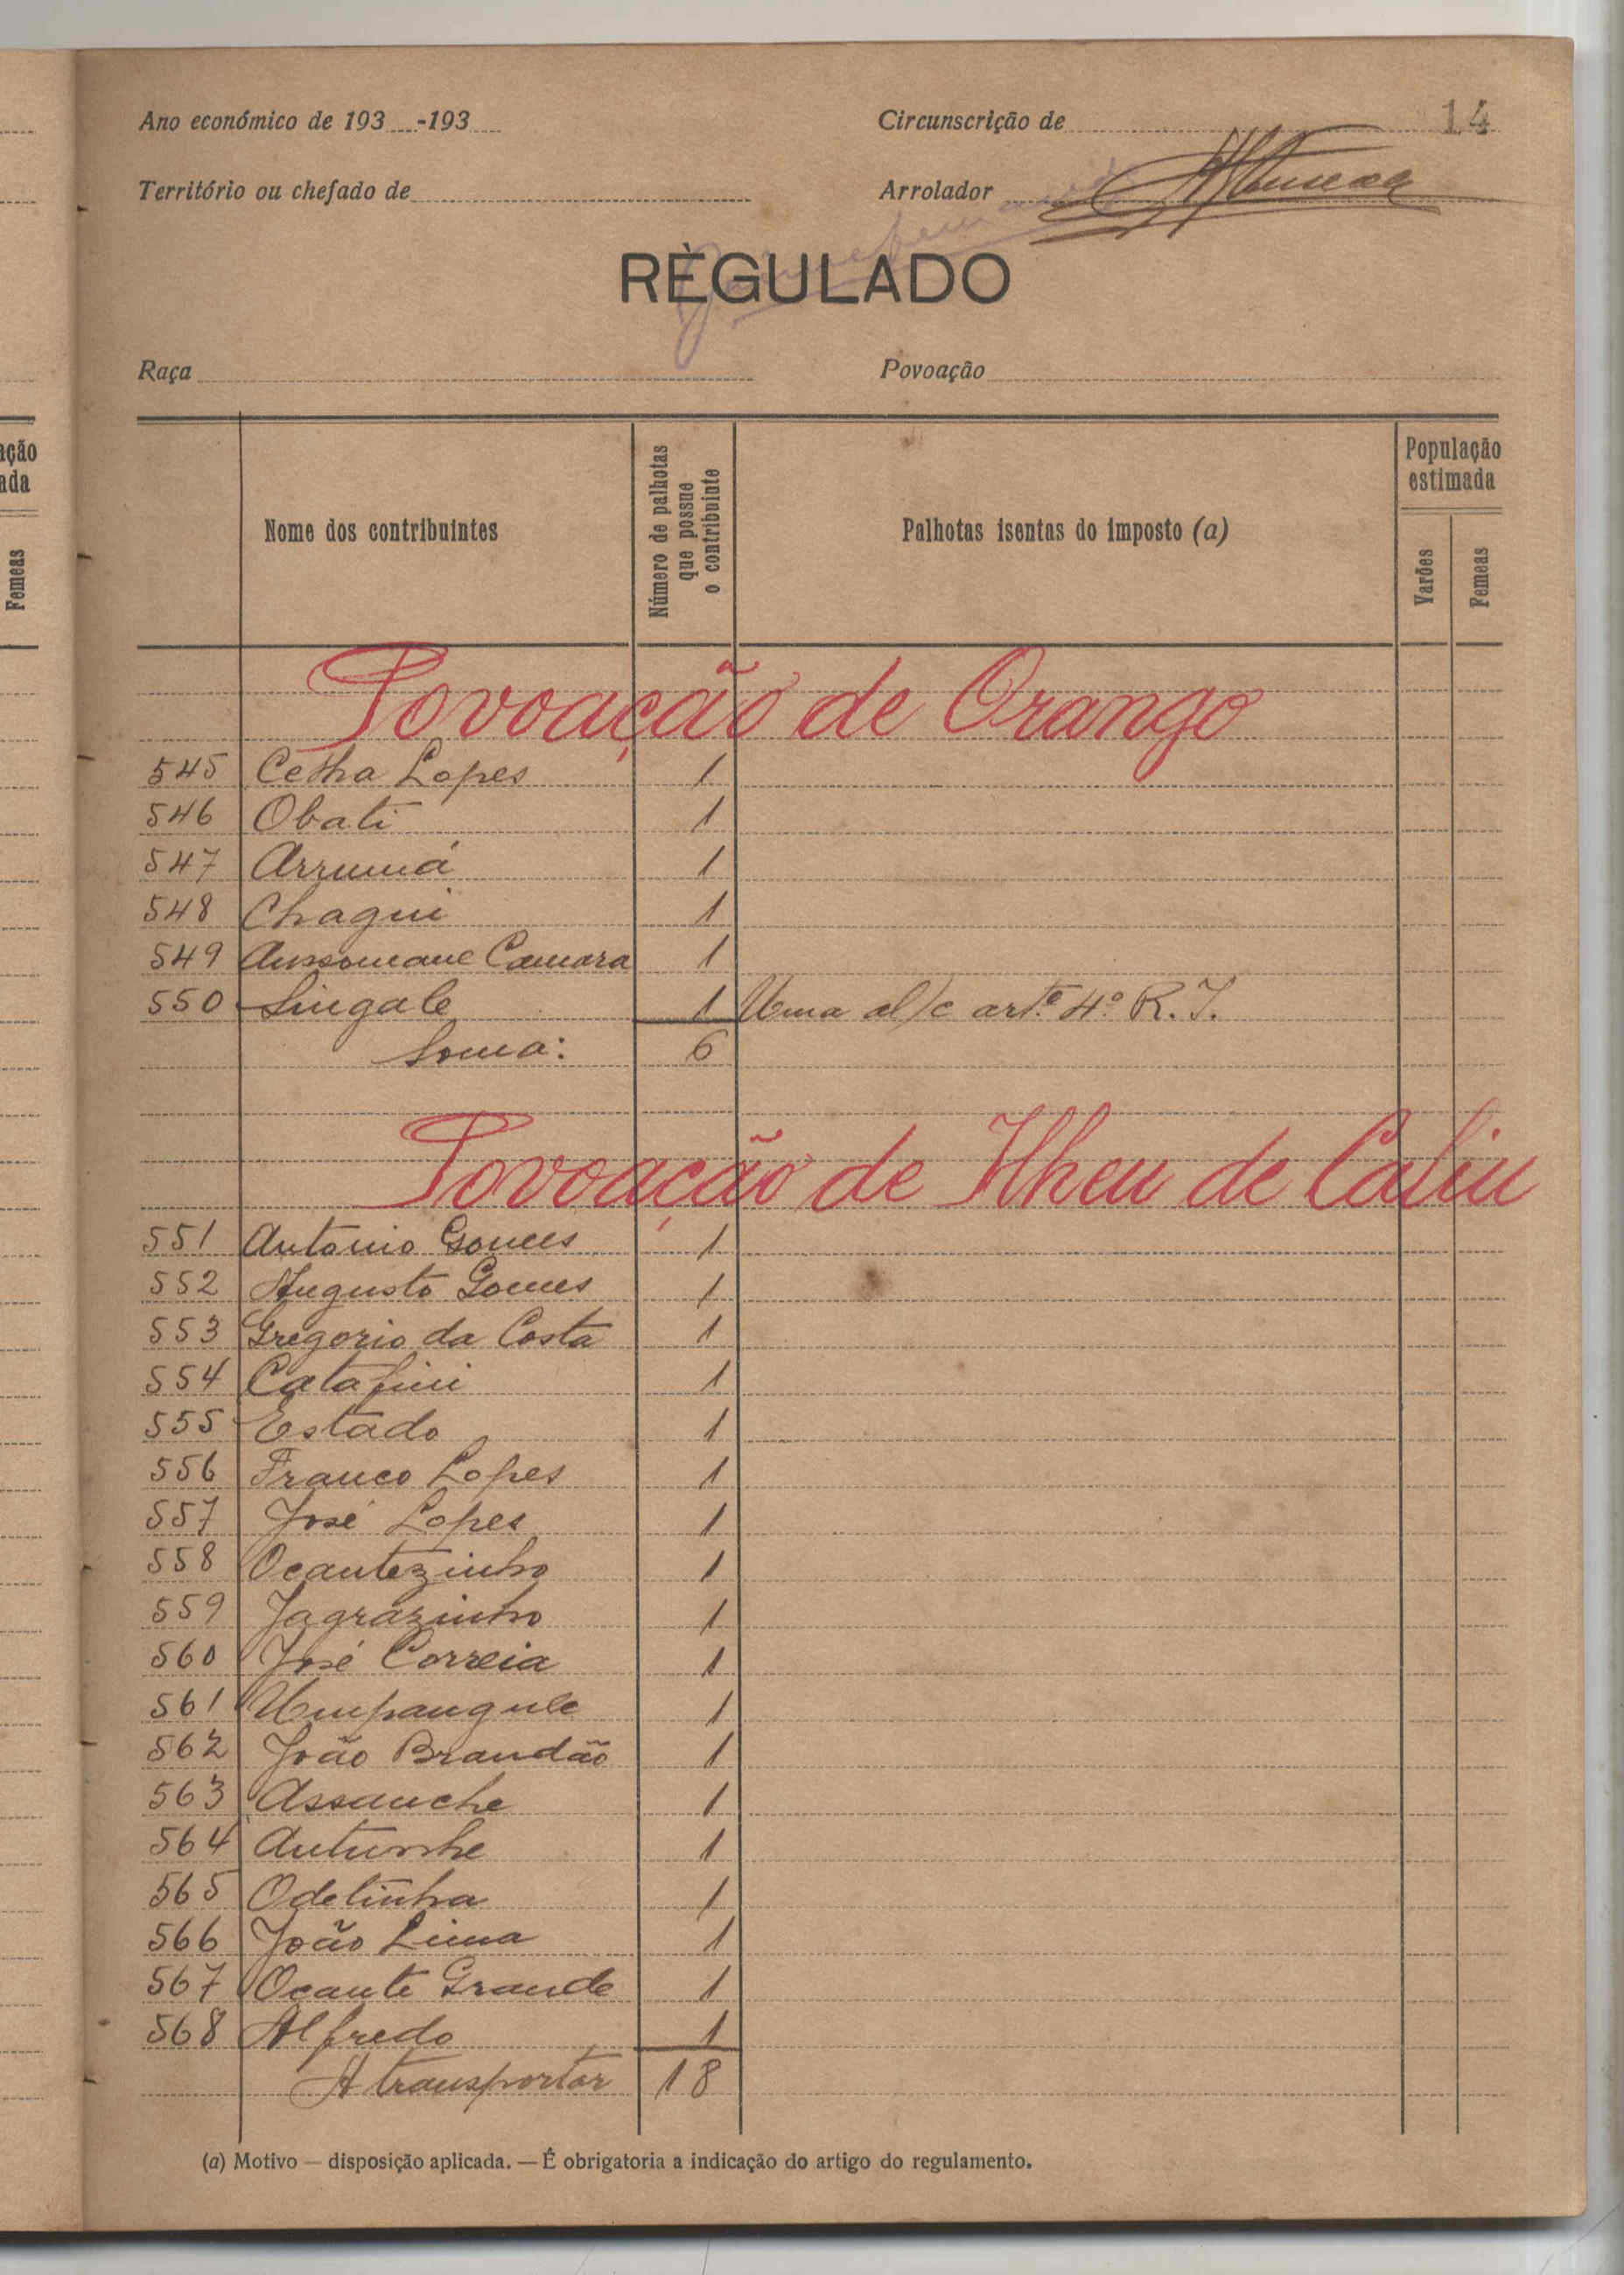 Ano económico de 193 -193
Circunscrição de
14
Território ou chefado de
Arrolador
RÈGULADO
Raça
Povoação
ação
ada
Femeas
Nome dos contribuintes
Número de palhotas que possue o contribuinte
Palhotas isentas do imposto (a)
População estimada
Varões
Femeas
Povoação de Orango
545 Cetha Lopes 1
546 Obati 1
547 Arrumá 1
548 Chagui 1
549 Aussomane Camara 1
550 Singale 1 Uma al/c artº 4º R. I.
Soma: 6
Povoação de Ilheu de Cafiu
551 Antonio Gomes 1
552 Augusto Gomes 1
553 Gregorio da Costa 1
554 Catafini 1
555 Estado 1
556 Franco Lopes 1
557 José Lopes 1
558 Ocantezinho 1
559 Jagrazinho 1
560 José Correia 1
561 Umpangule 1
562 João Brandão 1
563 Assanche 1
564 1
565 Odelinha 1
566 João Lima 1
567 Ocante Grande 1
568 Alfredo 1
A transportar 18
(a) Motivo — disposição aplicada. — É obrigatoria a indicação do artigo do regulamento.